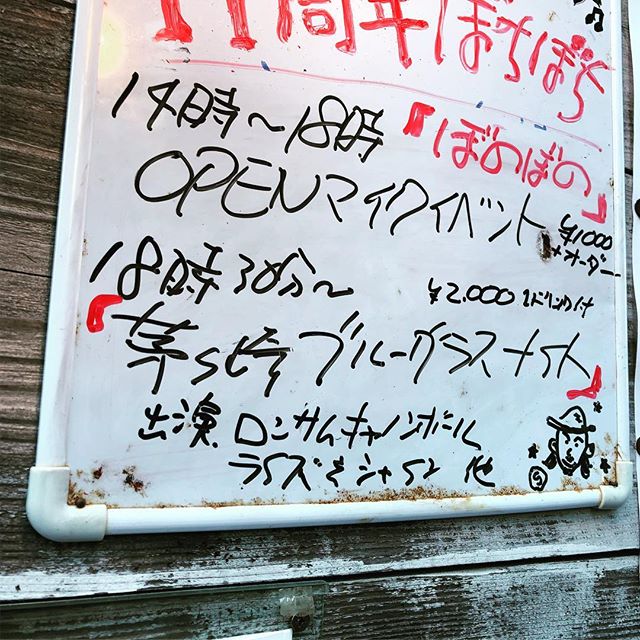 11周年ぼちぼち
14時〜18時『ぼのぼの』
OPENマイクイベント
¥1000
+オーダー
18時30分〜 ¥2.000 1ドリンク付
『茅ヶ崎ブルーグラスナイト』
出演 ロンサムキャノンボール
ライズ&シャイン 他